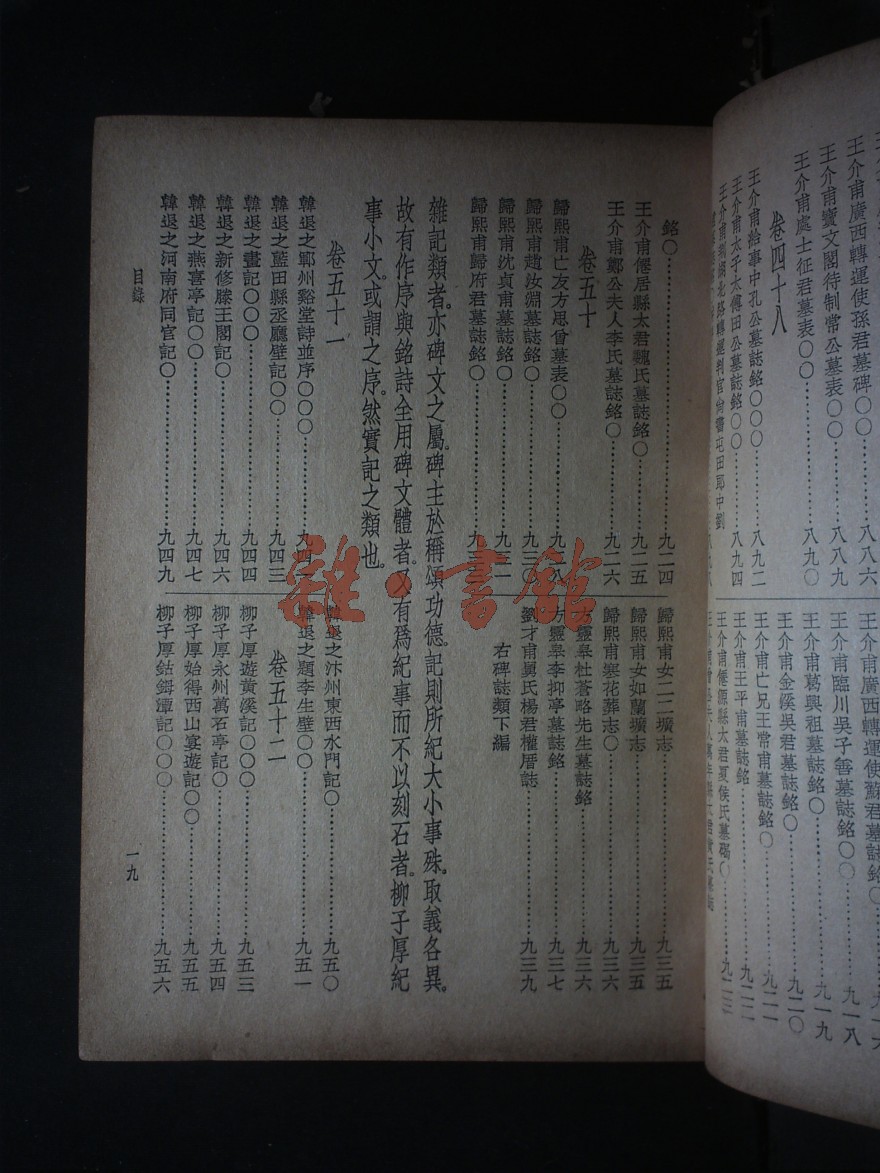 王介甫廣西轉運使孫君墓碑〇……八八六
王介甫寶文閣待制常公墓表〇〇……八八九
王介甫處士征君墓表〇〇……八九〇
卷四十八
王介甫給事中孔公墓誌銘〇〇〇……八九二
王介甫太子太傅田公墓誌銘〇〇……八九四
王介甫荆湖北路轉運判官尚書屯田郎中劉
王介甫臨川吳子善墓誌銘〇〇……九一八
王介甫葛興祖墓誌銘〇……九一九
王介甫金谿吳君墓誌銘〇……九二〇
王介甫亡兄王常甫墓誌銘〇……九二一
王介甫王平甫墓誌銘……九二二
王介甫僊源縣太君夏侯氏墓碣〇……九二三
銘〇……九二四
王介甫僊居縣太君魏氏墓誌銘〇……九二五
王介甫鄭公夫人李氏墓誌銘〇……九二六
卷五十
歸熙甫亡友方思曾墓表〇〇……九二八
歸熙甫趙汝淵墓誌銘〇……九三〇
歸熙甫沈貞甫墓誌銘〇……九三一
歸熙甫歸府君墓誌銘〇……九三
歸熙甫女二二壙志……九三五
歸熙甫女如蘭壙志……九三五
歸熙甫寒花葬志〇……九三六
方靈皋杜蒼略先生墓誌銘……九三六
方靈皋李抑亭墓誌銘……九三七
劉才甫舅氏楊君權厝誌……九三九
右碑誌類下編
雜記類者。亦碑文之屬。碑主於稱頌功德。記則所紀大小事殊。取義各異。
故有作序與銘詩全用碑文體者。又有爲紀事而不以刻石者。柳子厚紀
事小文。或謂之序。然實記之類也。
卷五十一
韓退之鄆州谿堂詩並序〇〇〇……九四
韓退之藍田縣丞廳壁記〇〇……九四三
韓退之畫記〇〇〇……九四四
韓退之新修滕王閣記〇……九四六
韓退之燕喜亭記〇〇……九四七
韓退之河南府同官記〇……九四九
韓退之汴州東西水門記〇……九五〇
韓退之題李生壁〇〇……九五一
卷五十二
柳子厚遊黃溪記〇〇……九五三
柳子厚永州萬石亭記〇……九五四
柳子厚始得西山宴遊記〇〇……九五五
柳子厚鈷鉧潭記〇〇〇……九五六
目錄
一九
雜·書館